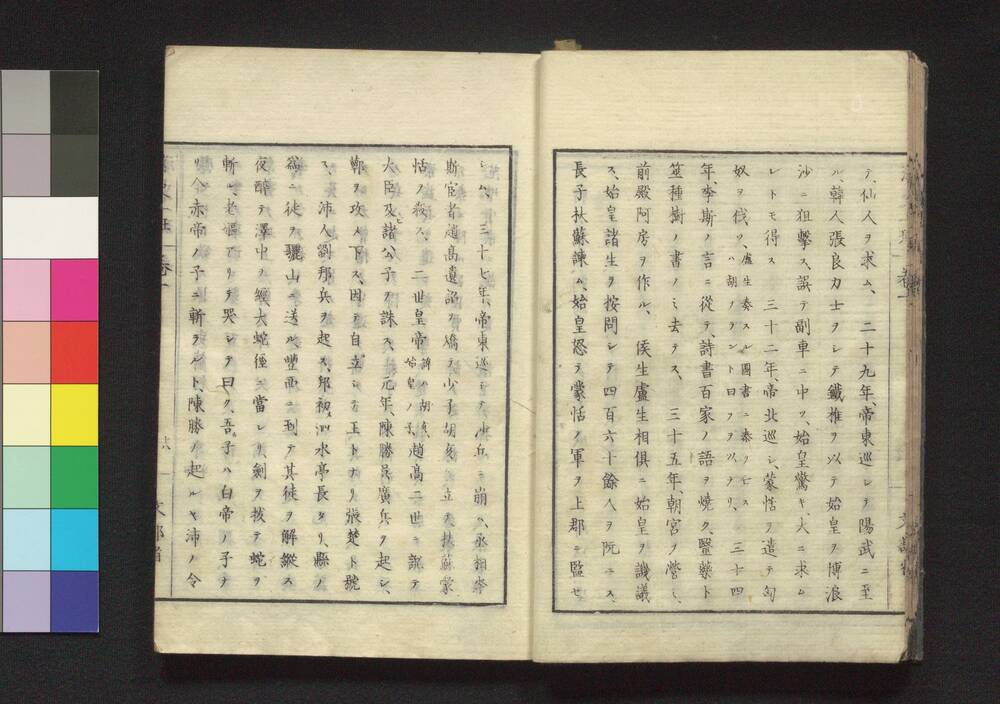 テ、仙人ヲ求ム、 二十九年、帝東巡シテ陽武ニ至
ル、韓人張良力士ヲシテ鐵椎ヲ以テ始皇ヲ博浪
沙ニ狙擊ス、誤テ副車ニ中ツ、始皇驚キ、大ニ求ム
レトモ得ス 三十二年、帝北巡シ、蒙恬ヲ遣テ匈
奴ヲ伐ツ、盧生奏スル圖書ニ秦ヲ亡ス
ハ胡ナラント曰ヲ以ナリ、 三十四
年、李斯ノ言ニ從テ、詩書百家ノ語ヲ燒ク、醫藥卜
筮種樹ノ書ノミ去ラス、 三十五年、朝宮ヲ營シ、
前殿阿房ヲ作ル、 侯生盧生相俱ニ始皇ヲ譏議
ス、始皇諸生ヲ按問シテ四百六十餘人ヲ阬ニス、
長子扶蘇諫ム、始皇怒テ蒙恬ノ軍ヲ上郡ニ監セ
シム、 三十七年、帝東巡シテ沙丘ニ崩ス、丞相李
斯宦者趙高遺詔ヲ矯テ少子胡亥ヲ立テ扶蘇蒙
恬ヲ殺ス、 二世皇帝諱ハ胡亥、
始皇ノ子、趙高二世ニ說テ
大臣及ヒ諸公子ヲ誅ス、元年、陳勝吳廣兵ヲ起シ、
鄲ヲ攻ㇺ下ス、因テ自立シテ王トナリ張楚ト號
ス、沛人劉邦兵ヲ起ス、邦初、泗水亭長タリ、縣ノ
爲ニ徒ヲ驪山ニ送ル、豐西ニ到テ其徒ヲ解縱ス
夜醉テ澤中ヲ經大蛇徑ニ當レリ、劍ヲ拔テ蛇ヲ
斬ル、老嫗アリテ哭シテ曰ク、吾子ハ白帝ノ子ナ
リ、今赤帝ノ子ニ斬ラルト、陳勝ノ起ルヤ沛ノ令